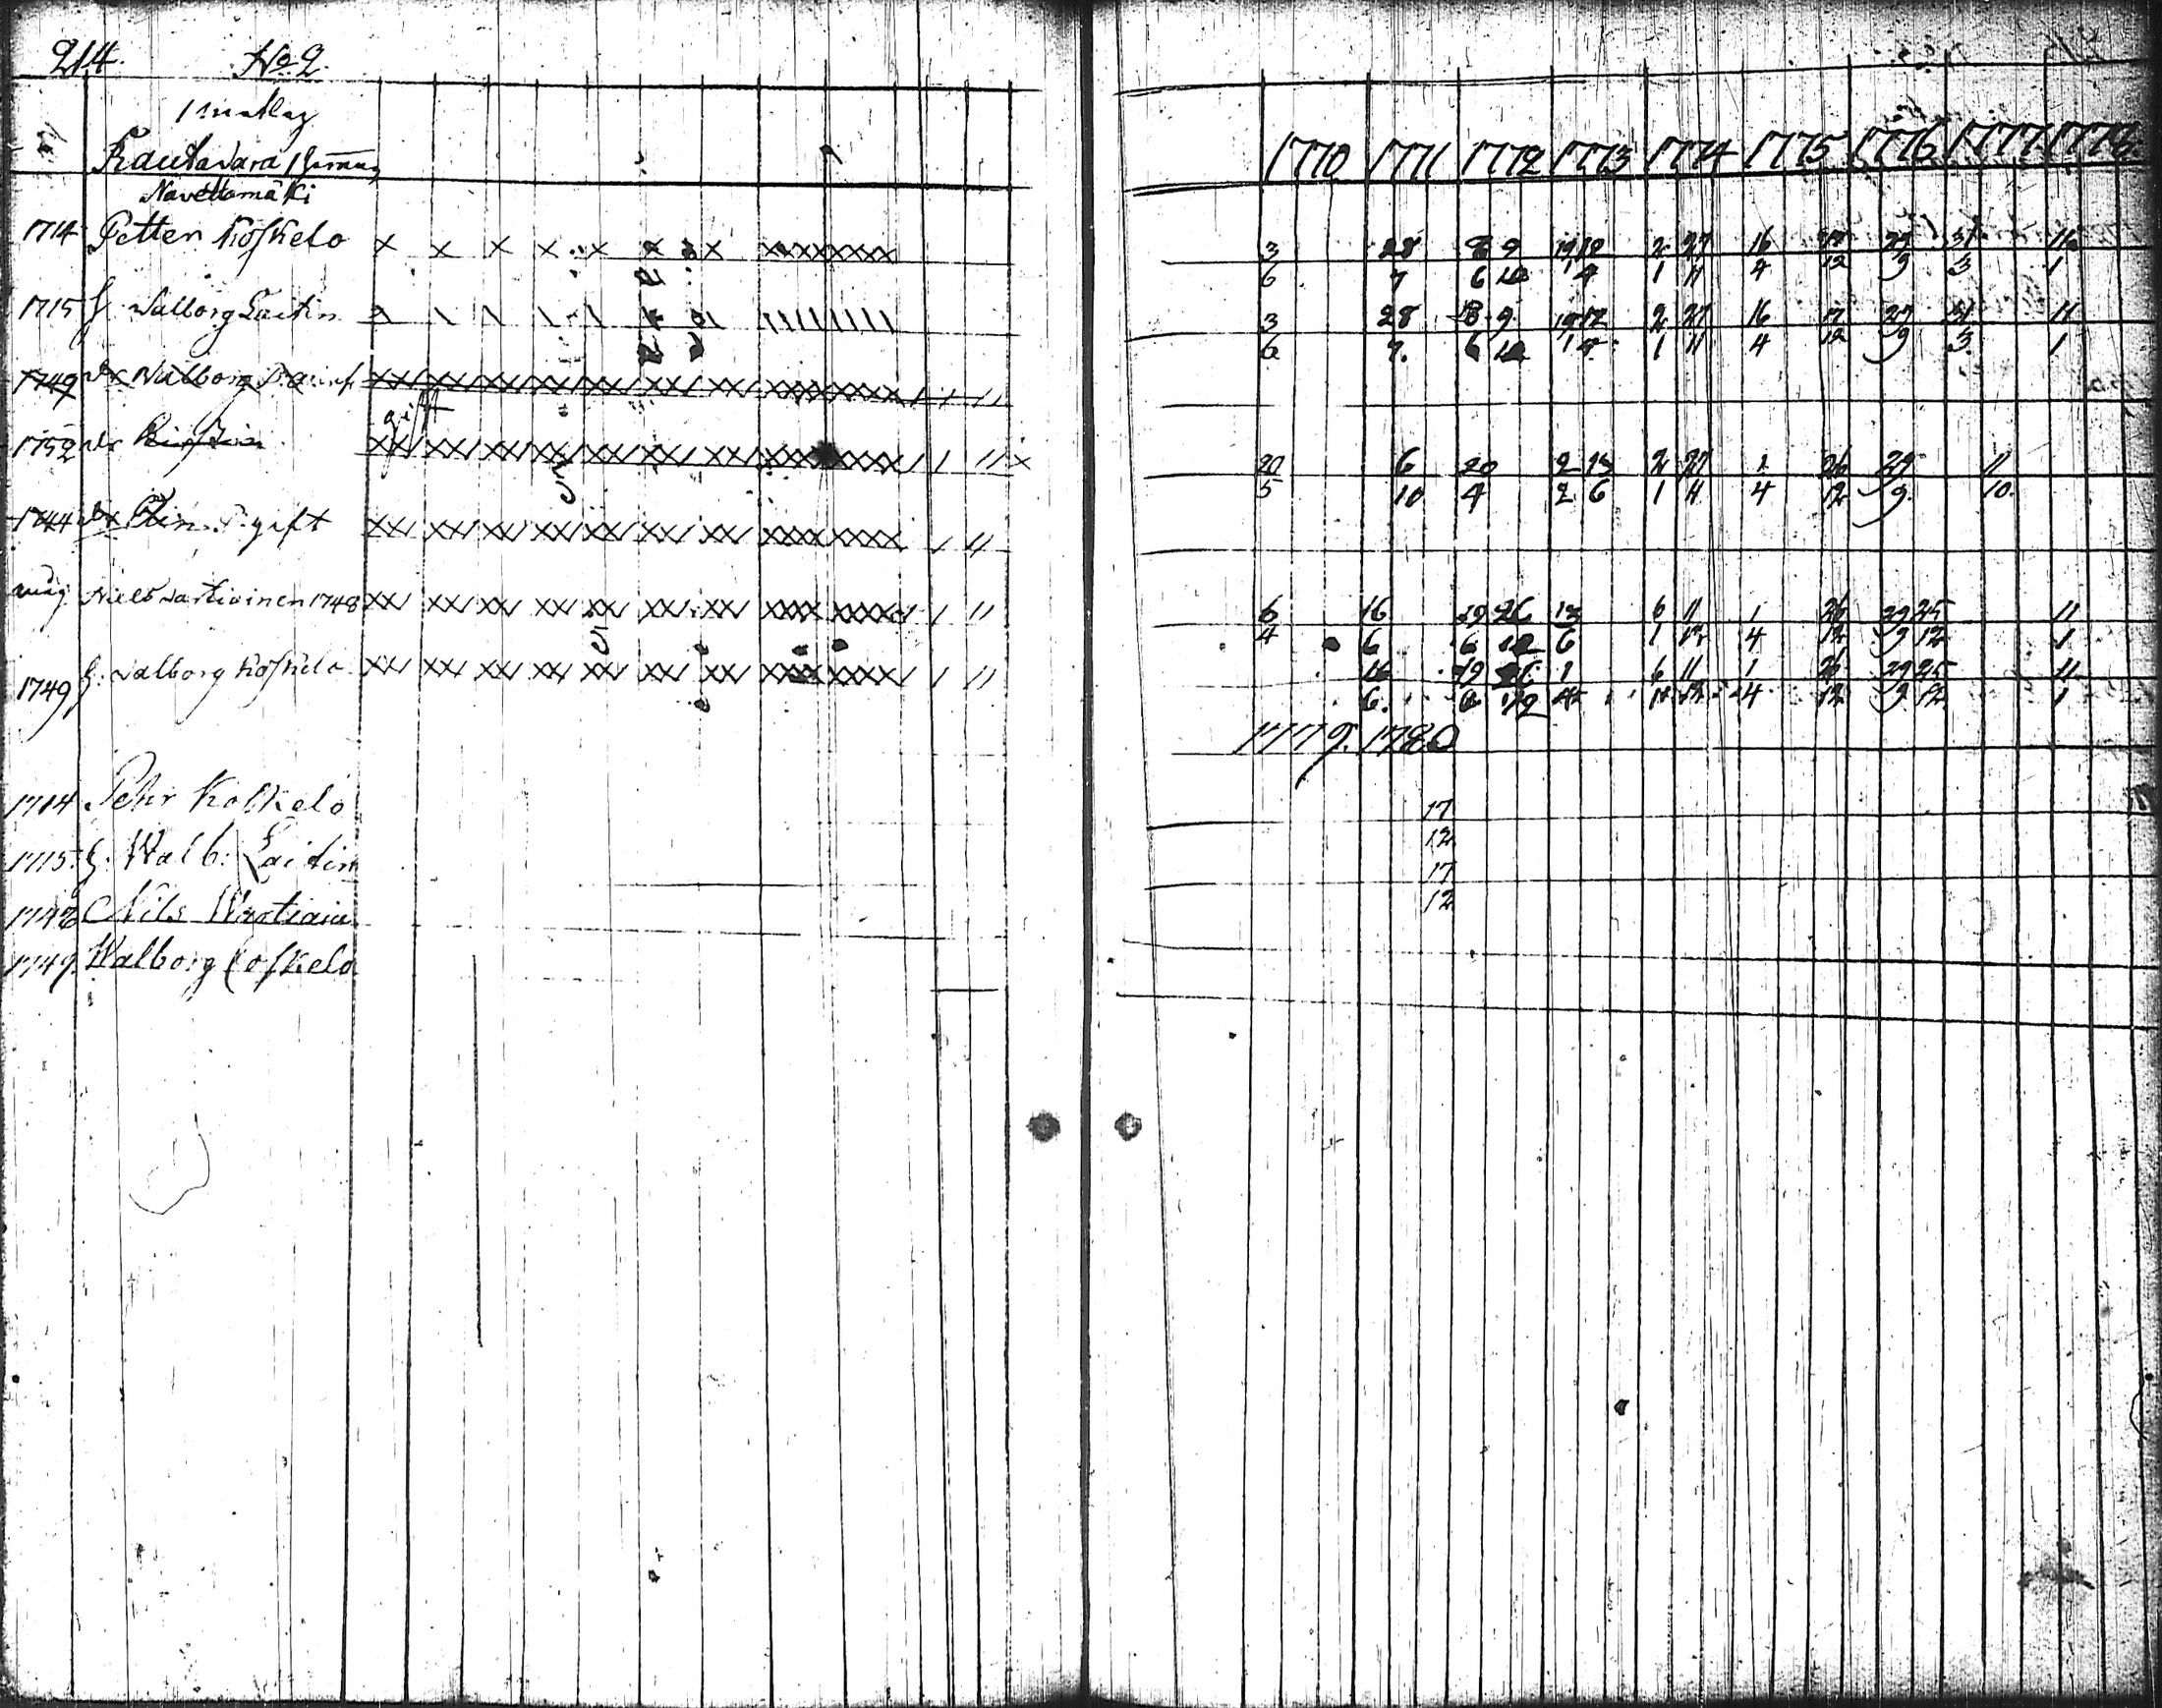 214. No 2.
Rautavara
Navettomäki
1714 Petter Koskelo
1715 H. Valborg Laitin
1749 dr Walborg
1752 dr Kirstin
1744 dr gift
gift
måg Nils Vartiainen 1748
1749 H: Valborg Koskelo
1714 Pehr Koskelo
1715. H. Walb: Laitin
1748 Nils Wartiain
1749. Walborg Koskelo
1770 1771 1772 1773 1774 1775 1776 1777 1778
3 28 8 9 19 12 2 27 16 17 29 31 11
6 7 6 12 1 4 1 11 4 12 9 3 1
3 28 8 9 19 12 2 27 16 17 29 31 11
6 7. 6 12 1 4 1 11 4 12 9 3. 1
20 6 20 2 13 2 27 1 26 29 11
5 10 4 2 6 1 11 4 12 9. 10.
6 16 19 26 13 6 11 1 26 29 25 11
4 6 6 12 6 1 12 4 12 9 12 1
16 19 26 1 6 11 1 26 29 25 11
6. 6 12 4 1 12 4 12 9 12 1
1779. 1780
17
12
17
12